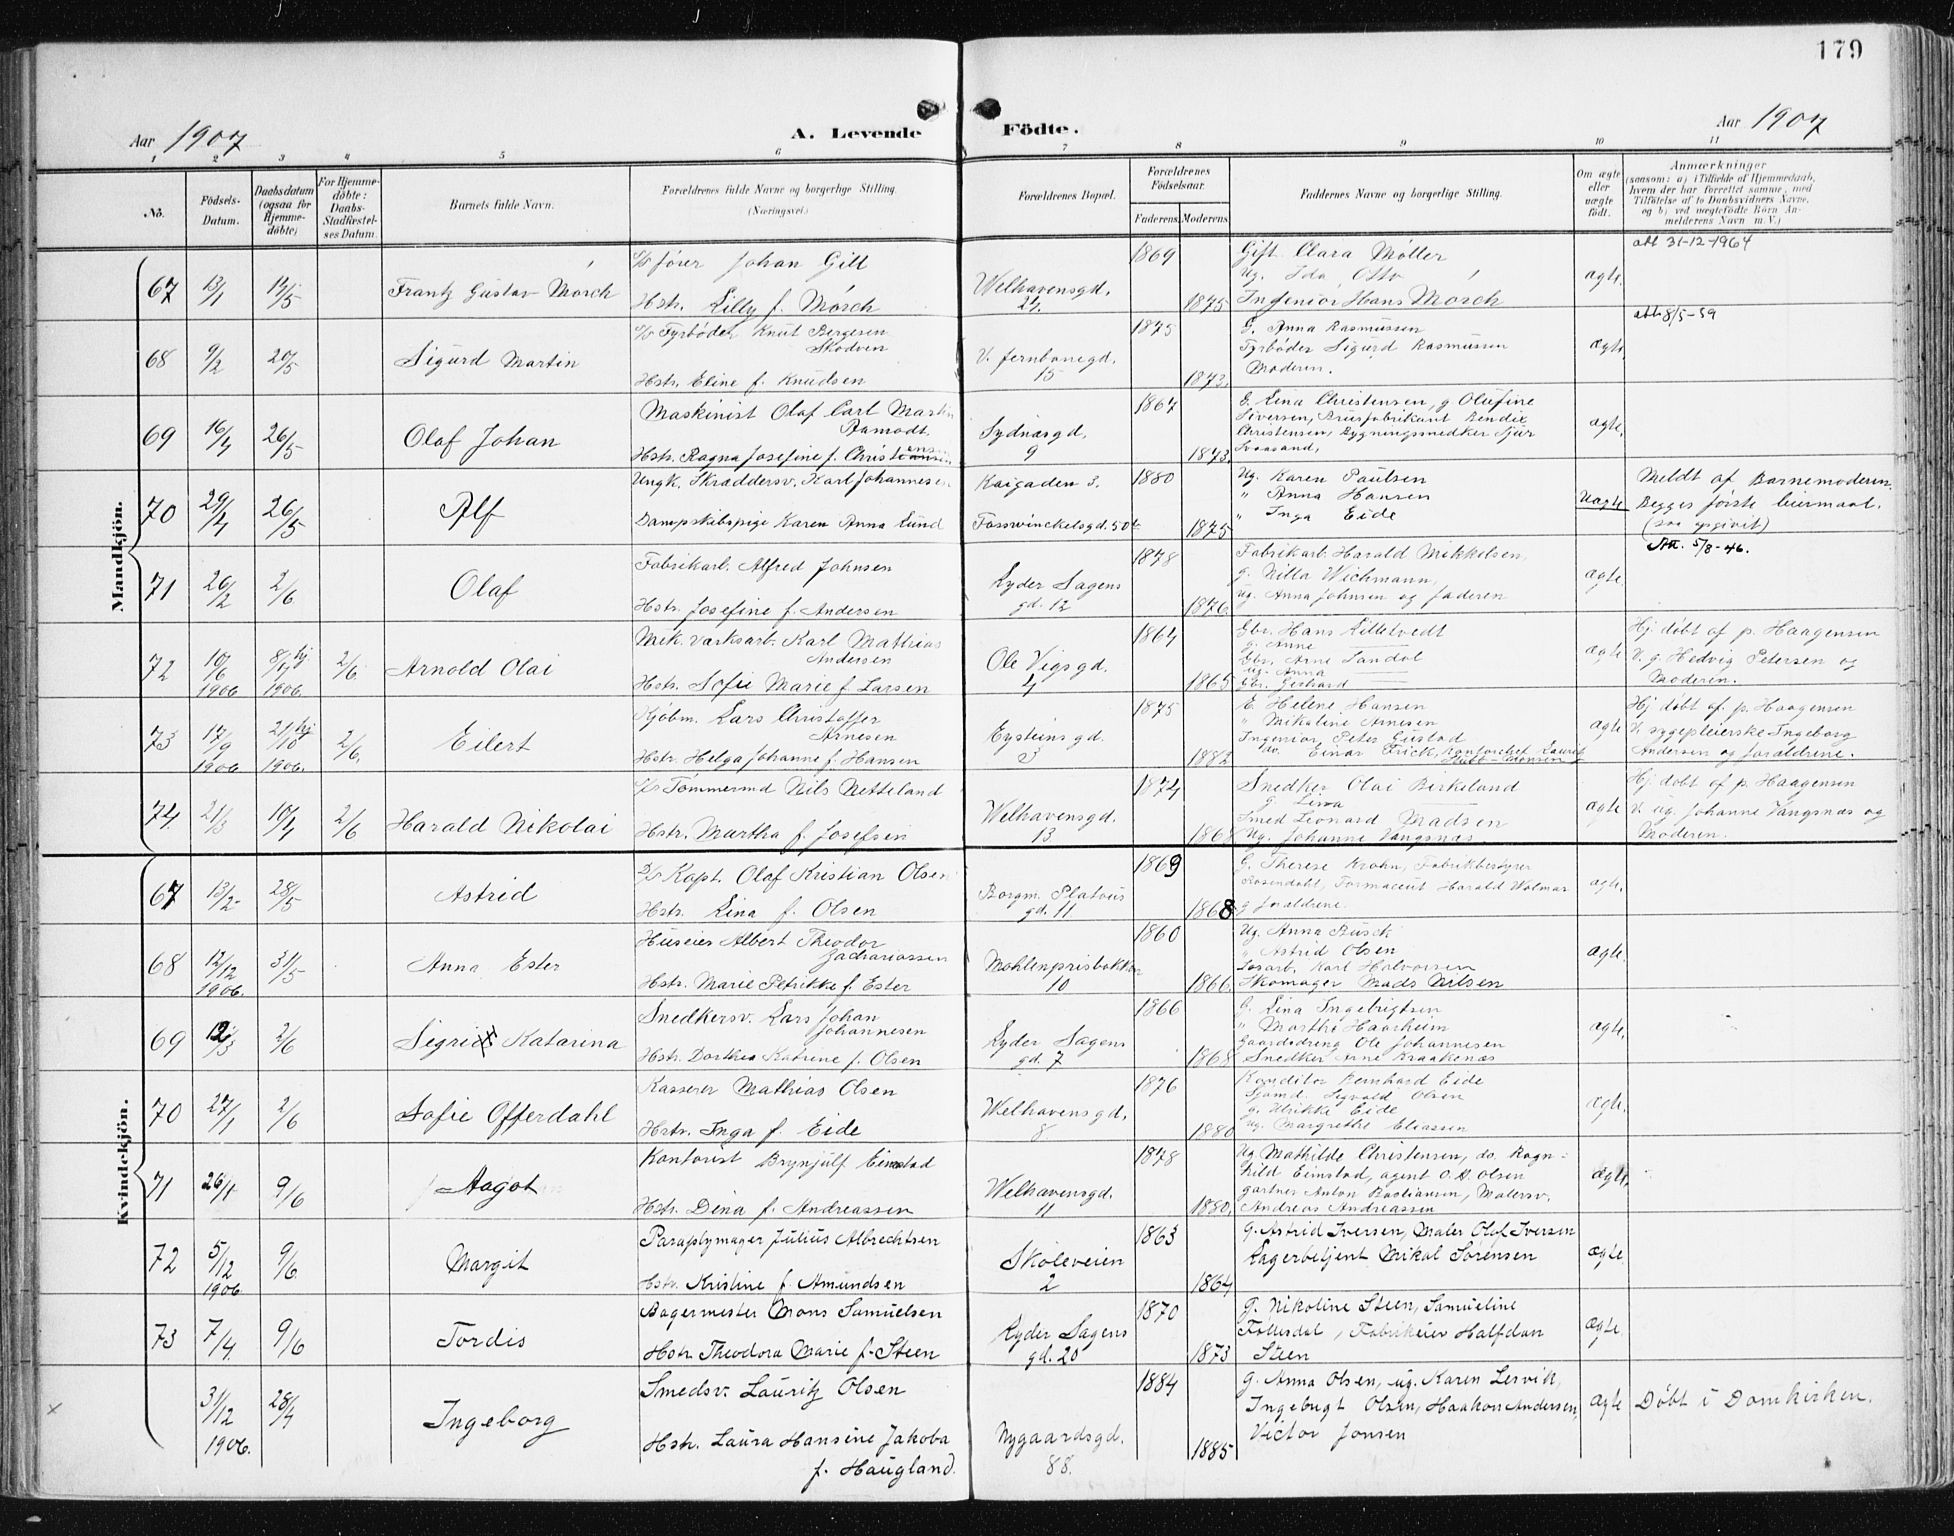 179
Aar 1907
A. Levende Födte.
Aar 1907
1 2 3 4 5 6 7 8 9 10 11
No.
Födsels-Datum.
Daabsdatum (ogsaa for Hjemme-döbte)
For Hjemme-döbte: Daabs-Stadfæstel-ses Datum.
Barnets fulde Navn.
Forældrenes fulde Navne og borgerlige Stilling. (Næringsvei.)
Forældrenes Bopæl.
Forældrenes Födselsaar.
Faderens. Moderens.
Faddernes Navne og borgerlige Stilling.
Om ægte eller uægte födt.
Anmærkninger
(saasom: a) i Tilfælde af Hjemmedaab,
hvem der har forrettet samme, med
Tilföielse af to Daabsvidners Navne,
og b) ved uægtefödte Börn An-
melderens Navn m. V.)
Mandkjön.
67 13/1 12/5 Frantz Gustav Mörch
fører Johan Gill
Hstr. Lilly f. Mörch
Welhavensgd. 24.
1869 1875
Gift Clara Møller
Ug. Ida Otto
Ingeniør Hans Mörch
ægte.
att 31-12-1964
68 9/2 20/5 Sigurd Martin
Fyrbøder Knut Bergesen
Skodven
Hstr. Eline f. Knudsen
V. Jernbanegd. 15
1875 1873.
G. Anna Rasmussen
Fyrbøder Sigurd Rasmussen
Moderen.
ægte
att 8/5-59
69 16/4 26/5 Olaf Johan
Maskinist Olaf Carl Martin
Ramodt.
Hstr. Ragna Josefine f. Christiansen
Sydnæsgd. 9
1867 1873.
G. Lina Christensen, g. Olufine
Siversen, Brusfabrikant Bendix
Christensen, Bygningssnedker Sjur
Svaasand,
ægte.
70 29/4 26/5 Alf
Ungk. Skræddersv. Karl Johannesen
Dampskibspige Karen Anna Lund
Kaigaden 3.
Fosswinckelsgd. 50
1880 1875
Ug. Karen Paulsen
" Anna Hansen
" Inga Eide
Uægte
Meldt af Barnemoderen.
Begges første leiermaal.
(saa opgivit)
71 26/2 2/6 Olaf
Fabrikarb. Alfred Johnsen
Hstr. Josefine f. Andersen
Lyder Sagens gd. 12
1878 1876.
Fabrikarb. Harald Mikkelsen,
g. Nilla Wichmann,
Ug. Anna Johnsen og faderen
ægte
Att. 5/8-46.
72 10/6 1906 8/7 hj 1906. 2/6 Arnold Olai
Mek. værksarb. Karl Mathias
Andersen
Hstr. Sofie Marie f. Larsen
Ole Vigs gd. 4
1864 1865
Gbr. Hans Lilletvedt
g. Anne
Gbr. Arne Sandal
ug. Anna
Gbr. Gerhard
ægte
Hj. døbt af p. Haagensen
V. g. Hedvig Petersen og
Moderen.
73 17/9 1906 21/10 hj 1906. 2/6. Eilert
Kjøbm. Lars Christoffer
Arnesen
Hstr. Helga Johanne f. Hansen
Eysteins gd. 3
1875 1882
E. Helene Hansen
" Mikaline Arnesen
Ingeniør Peter Gustad
do. Einar Frick, Kontorchef Laurits
ægte
Hj døbt af p. Haagensen
V. sygepleierske Ingeborg
Andersen og forældrene.
74. 21/3 10/4 2/6 Harald Nikolai
Tømmermd Nils Netteland
Hstr. Martha f. Josefsen
Welhavensgd. 13
1874 1868
Snedker Olai Birkeland
g. Lina
Smed Leonard Madsen
Ug. Johanne Vangsnæs
ægte
Hj døbt af p. Haagensen
V. ug. Johanne Vangsnæs og
Moderen.
Kvindekjön.
67 13/2 28/5 Astrid
Kapt. Olaf Kristian Olsen
Hstr. Lina f. Olsen
Borgm. Platous gd. 11
1869 1868
G. Therese Krohn, Fabrikbestyrer
Rosendahl, Farmaceut Harald Walmar
g forældrene.
ægte.
68 12/12 1906. 31/5 Anna Ester
Huseier Albert Theodor
Zachariassen
Hstr. Marie Petrikke f. Ester
Møhlenprisbakken 10
1860 1866.
Ug. Anna Busck
" Astrid Olsen
Løsarb. Karl Halvorsen
Skomager Mads Nilsen
ægte.
69 12/3 2/6 Sigrid Katarina
Snedkersv. Lars Johan
Johannesen
Hstr. Dorthea Katrine f. Olsen
Lyder Sagens gd. 7
1866 1868
G. Lina Ingebrigtsen
" Marthe Haarheim
Gaardsdreng Ole Johannesen
Snedker Arne Kraakenæs
ægte.
70 27/1 2/6 Sofie Offerdahl
Kasserer Mathias Olsen
Hstr. Inga f. Eide
Welhavens gd. 8
1876 1880
Konditor Bernhard Eide
Sjømd. Sigvald Olsen
g. Ulrikke Eide
ug. Margrethe Eliassen
ægte.
71 26/1 9/6 Aagot
Kontorist Brynjulf Eimstad
Hstr. Dina f. Andreassen
Welhavensgd. 11
1878 1880.
Ug. Mathilde Christensen, do. Ragn-
hild Eimstad, agent O. A. Olsen
gartner Anton Bastiansen, Malersv.
Andreas Andreassen
ægte.
72 5/12 1906 9/6. Margit
Paraplymager Julius Albrechtsen
Hstr. Kristine f. Amundsen
Skoleveien 2
1863 1864
g. Astrid Iversen, Maler Olaf Iversen
Lagerbetjent Mikal Sørensen
ægte
73 7/4. 9/6 Tordis
Bagermester Mons Samuelsen
Hstr. Theodora Marie f. Steen
Lyder Sagens gd. 20
1870 1873
g. Nikoline Steen, Samueline
Follesdal, Fabrikeier Halfdan
Steen
ægte
x 31/12 1906. 28/4 Ingeborg
Smedsv. Lauritz Olsen
Hstr. Laura Hansine Jakoba
f. Haugland.
Nygaardsgd. 88.
1884 1885
g. Anna Olsen, ug. Karen Lervik,
Ingebrigt Olsen, Haakon Andersen,
Victor Jonsen
ægte
Døbt i Domkirken.